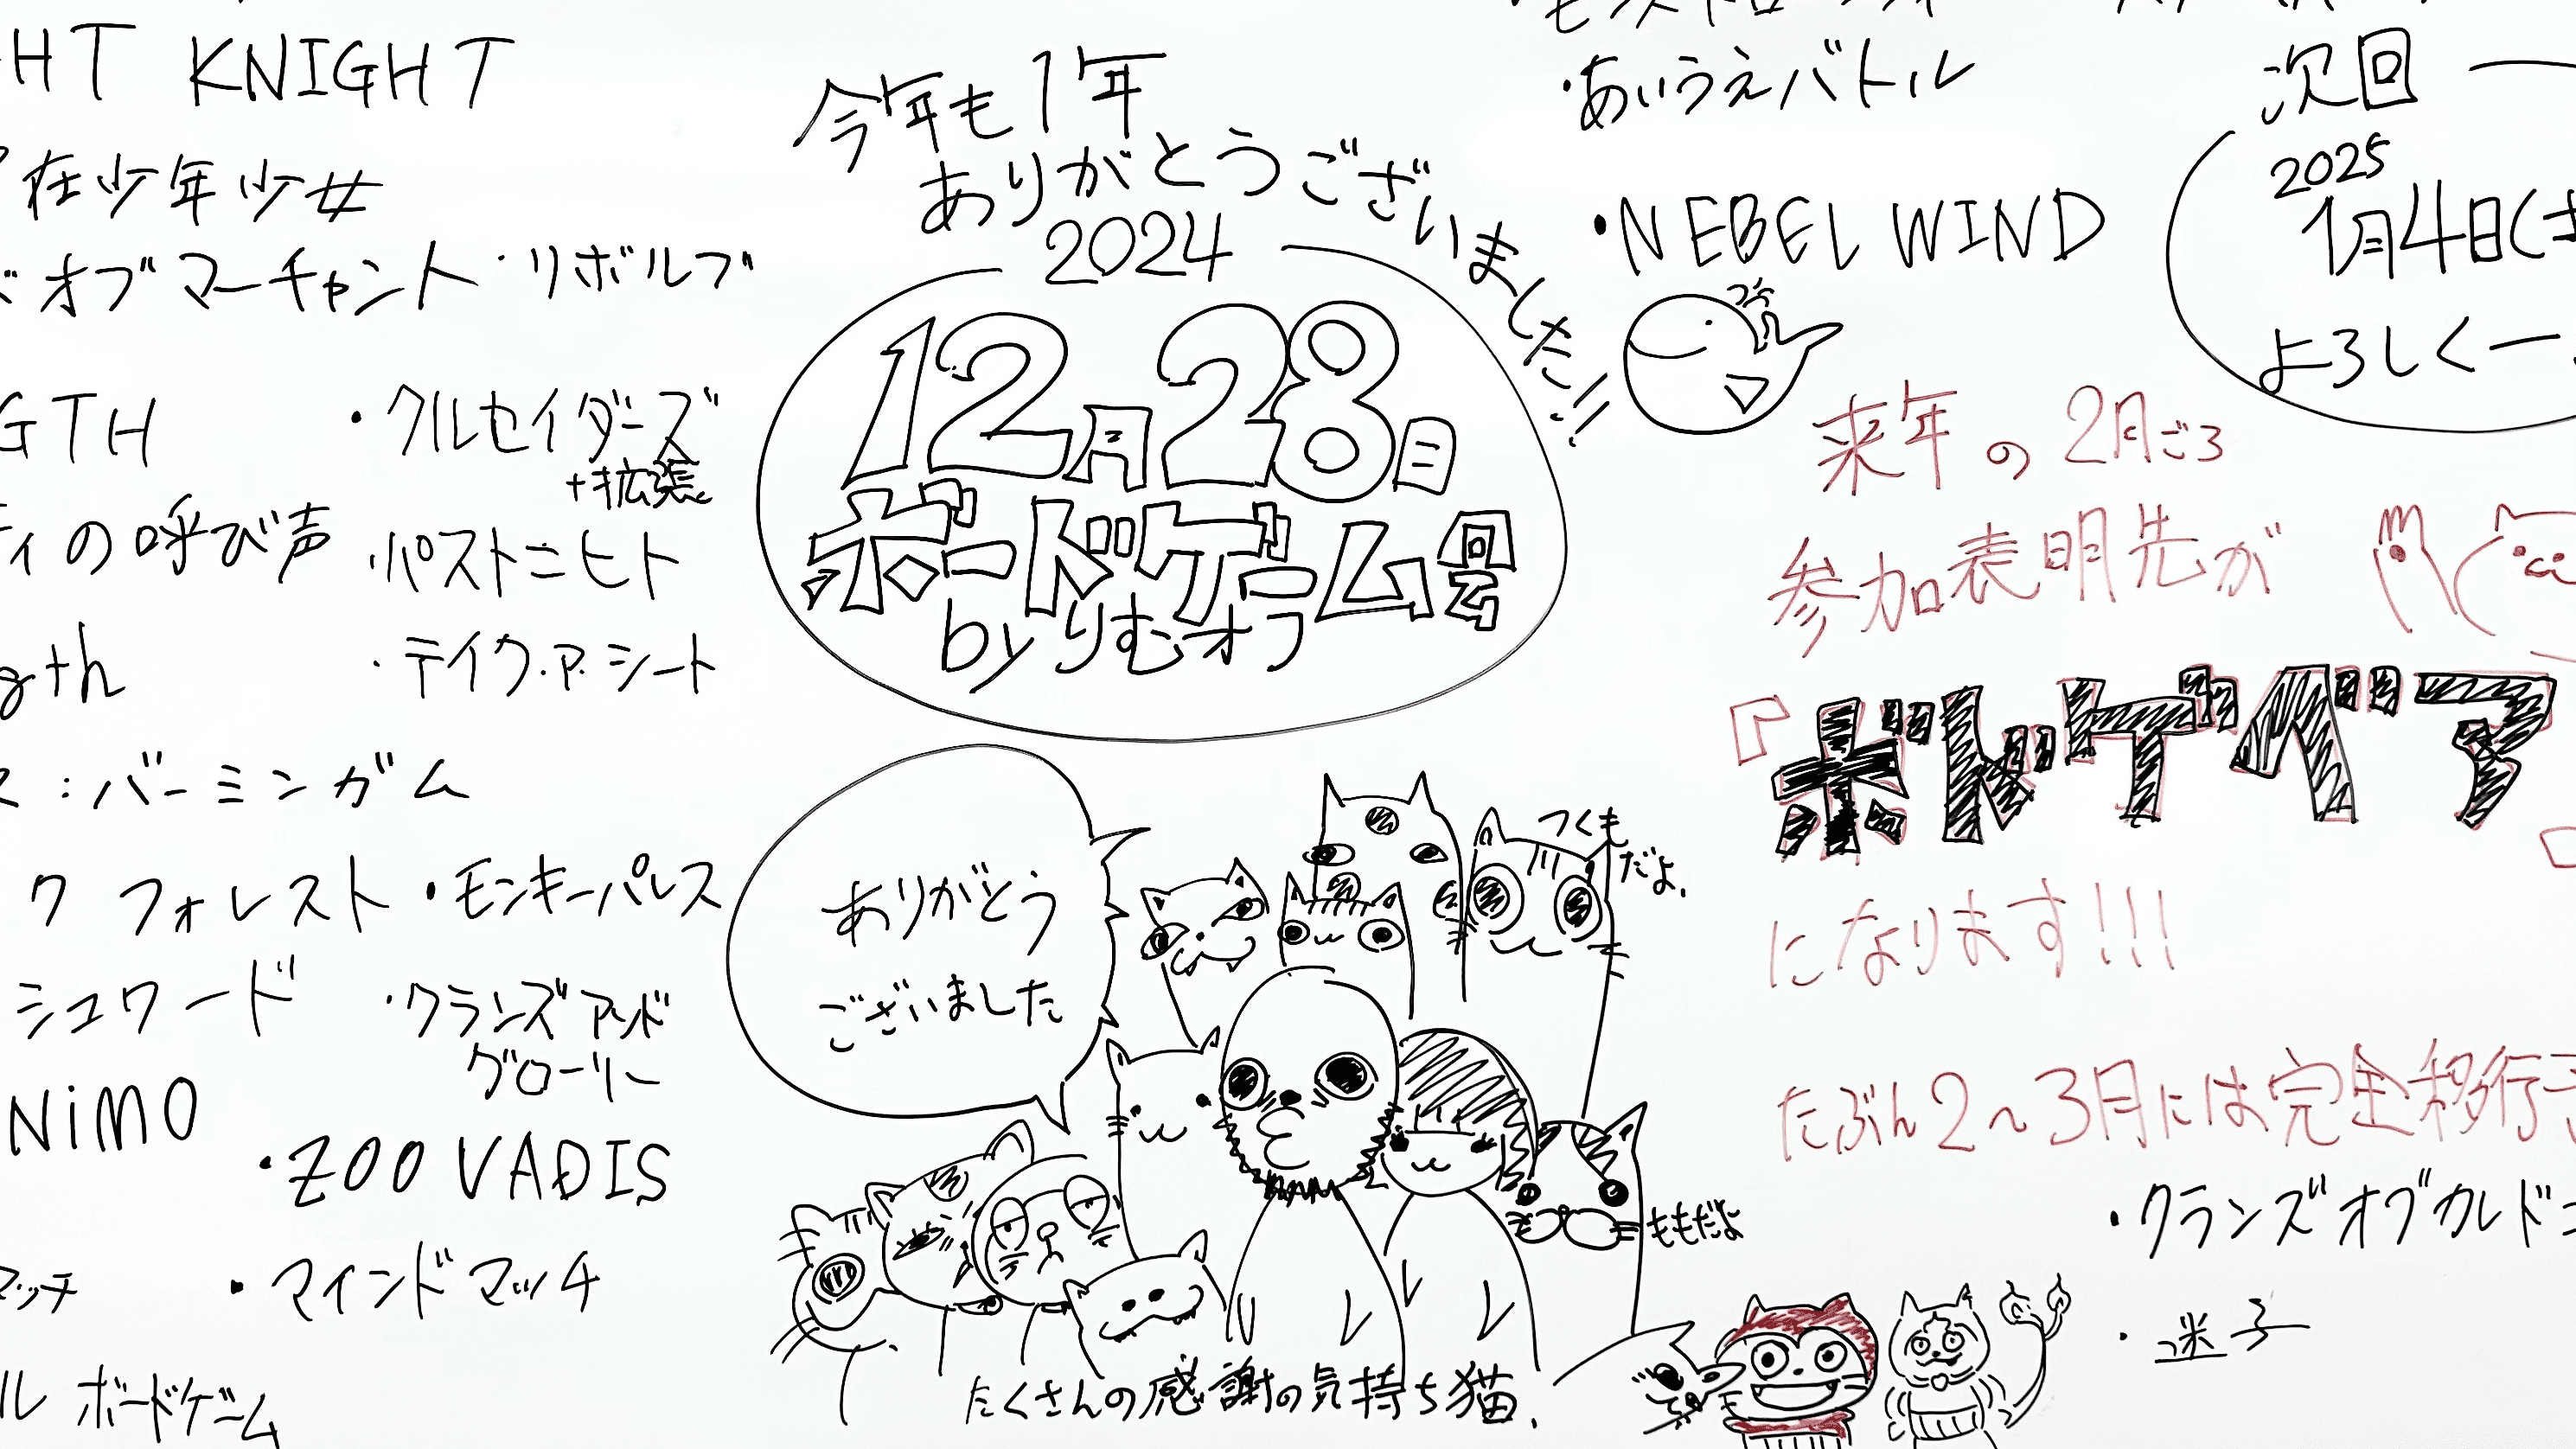 KNIGHT
在少年少女
オブマーチャント
・リボルブ
GTH
・クルセイダーズ
+拡張
ィの呼び声
・パストニヒト
gth
・テイク・ア・シート
：バーミンガム
ク フォレスト
・モンキーパレス
シュワード
・クランズアンド
グローリー
NiMO
・ZOO VADIS
マッチ
・マインドマッチ
ル ボードゲーム
今年も1年
ありがとうございました!!
2024
12月28日
ボードゲーム会
by りむオフ
ありがとう
ございました
つくも
だよ.
ももだよ
たくさんの感謝の気持ち猫.
・あいうえバトル
・NEBEL WIND
次回
2025
1月4日(土
よろしくー
来年の2月ごろ
参加表明先が
『ボドゲベア』
になります!!!
たぶん2〜3月には完全移行予
・クランズオブカルドニ
・迷子